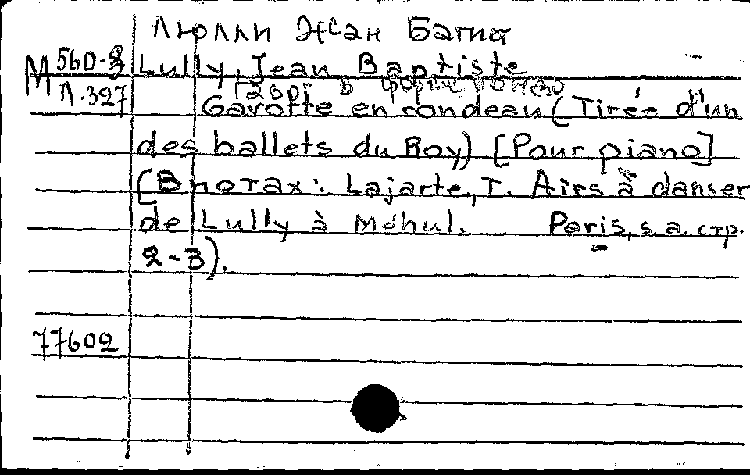 Люлли Жан Батист
М 560-3 Lully, Jean Baptiste
Л.327 [Гавот в форме рондо
Gavotte en rondeau (Tirée d'un
des ballets du Roy) [Pour piano]
(В нотах: Lajarte, T. Airs à danser
de Lully à Méhul. Paris, s.a. стр.
2-3).
77602